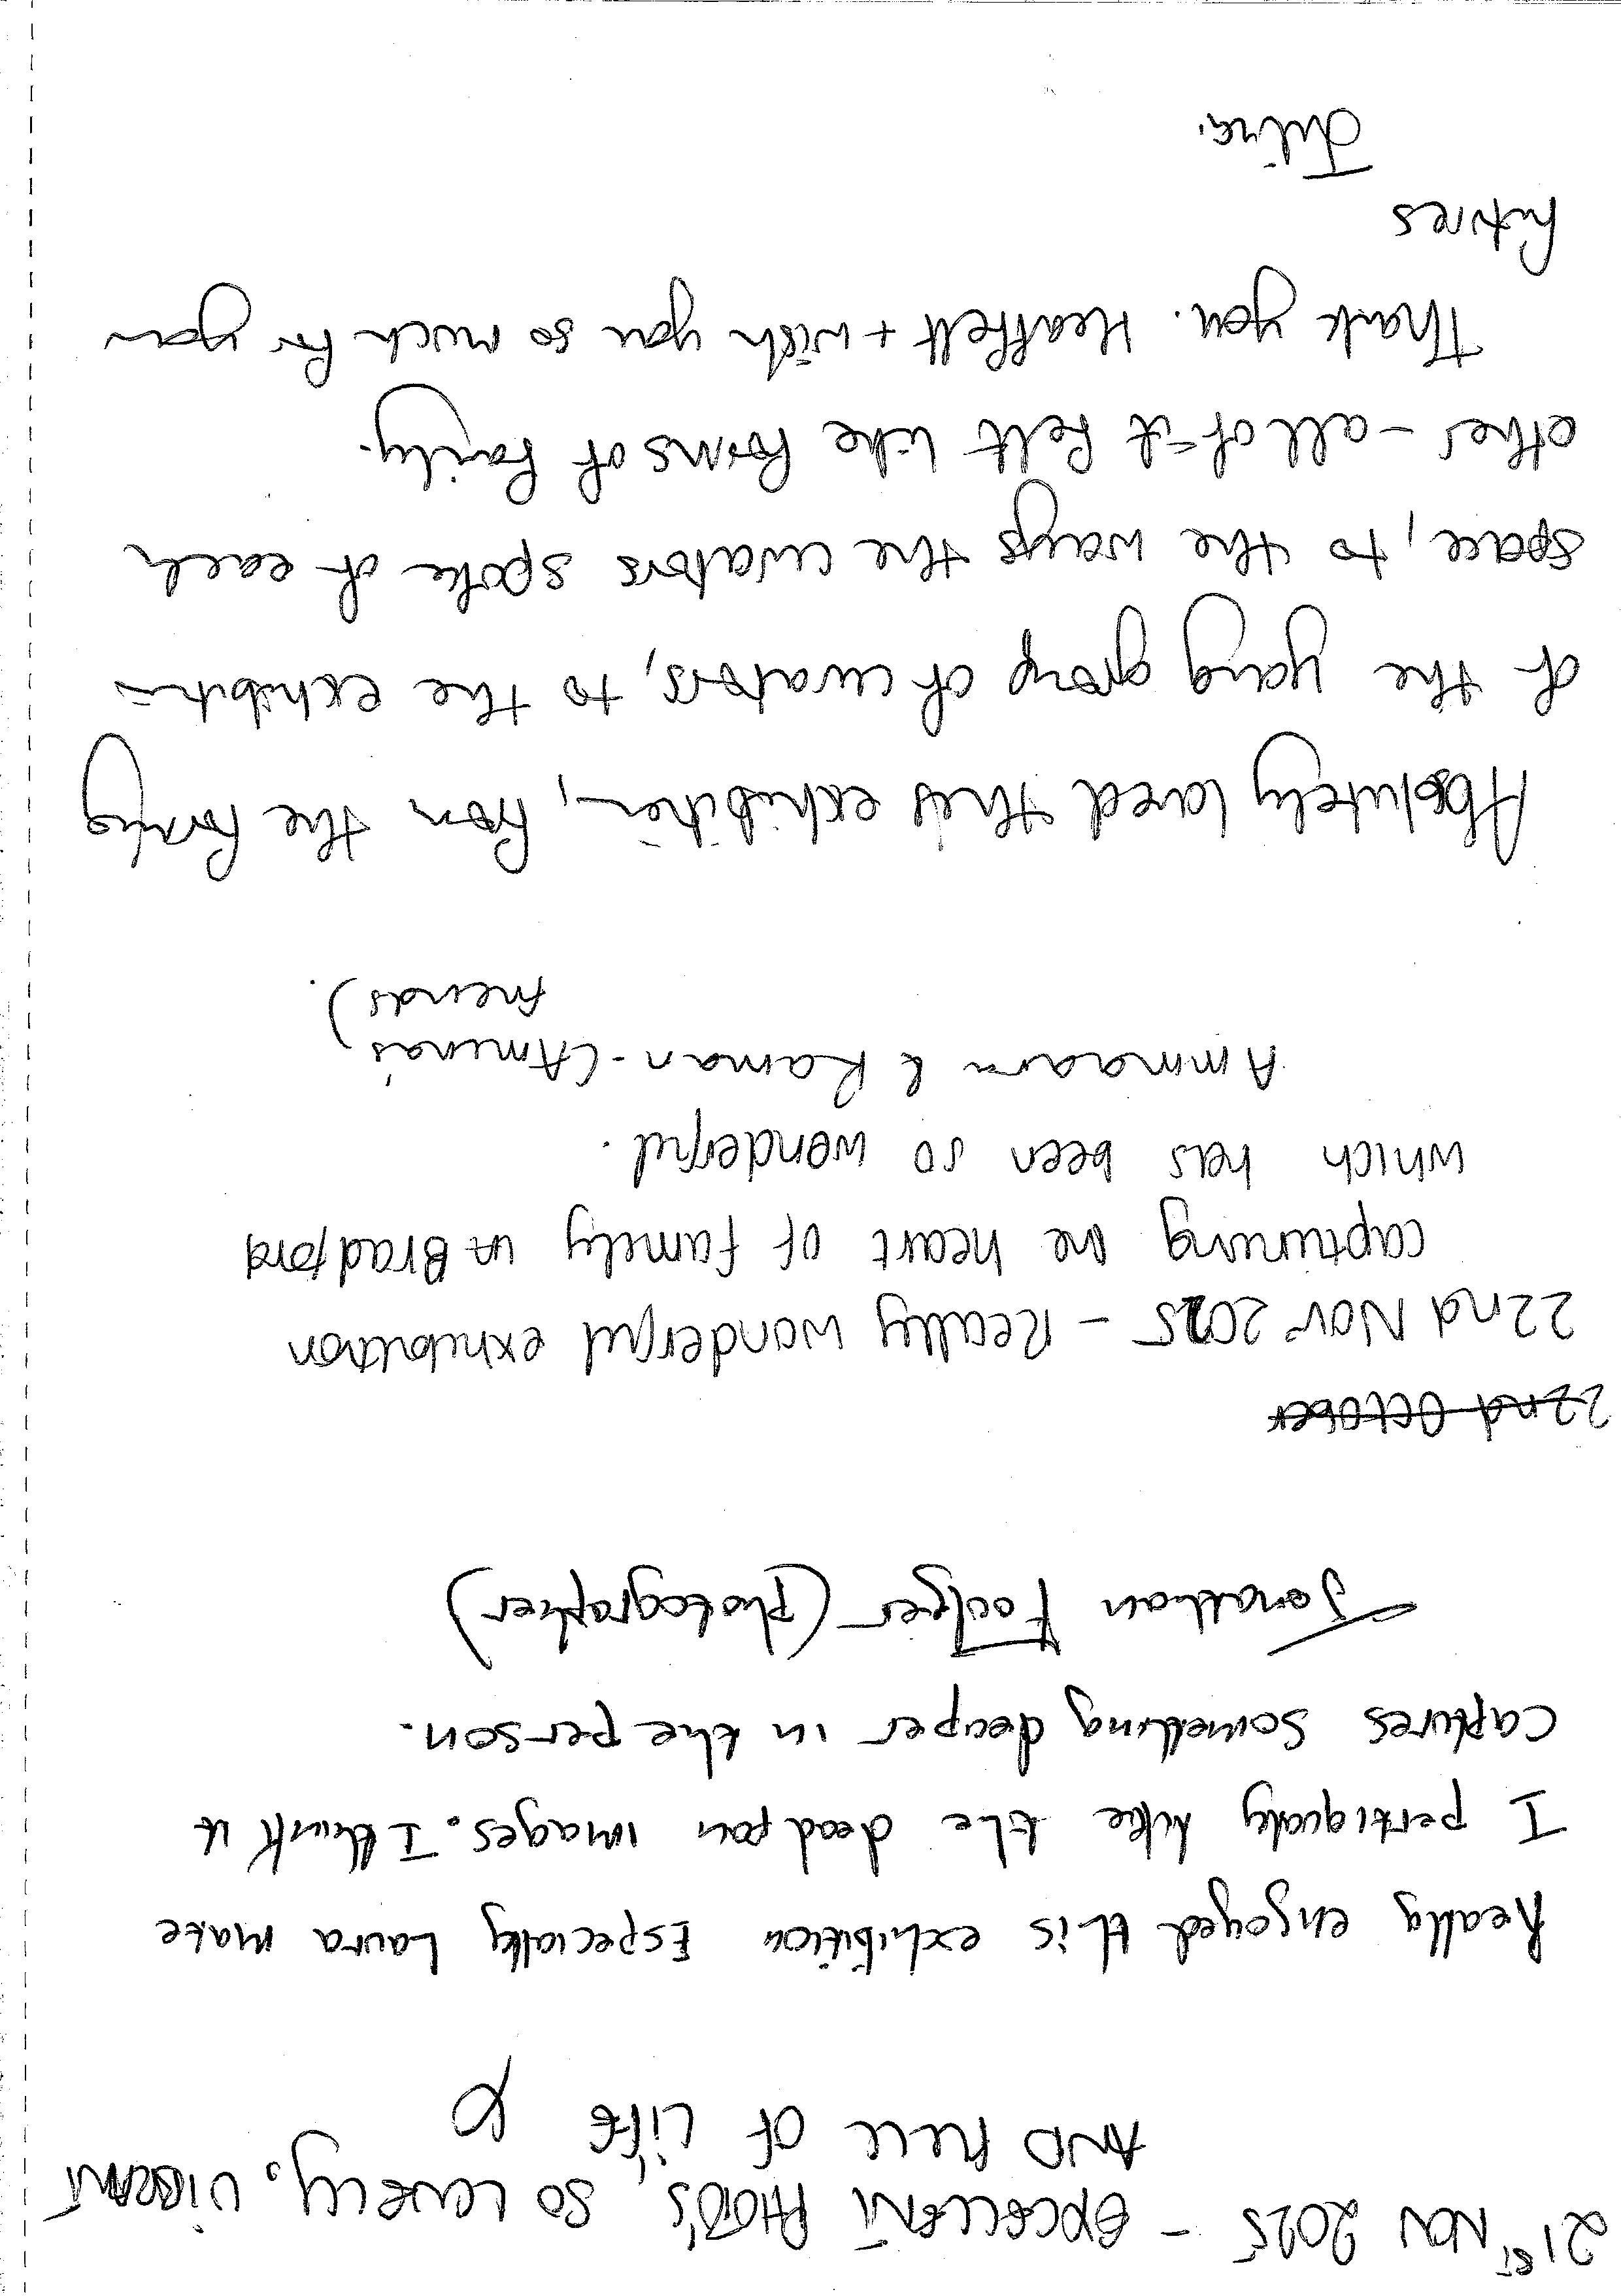 21st NOV 2025 - EXCELLENT PHOTO'S, SO LOVELY. VIBRANT
AND FULL OF LIFE
Really enjoyed this exhibition Especially Laura Mate
I pertiqualy like the deadpan images. I think it
captures something deeper in the person.
Jonathan Foulger (Photographer)
22nd October
22nd Nov 2025 - Really wonderful exhibition
capturing the heart of family in Bradford
which has been so wonderful.
Ammaarn & Raman - (Amina's
freinds).
Absolutely loved this exhibition, from the forming
of the young group of curators, to the exhibition
space, to the ways the curators spoke of each
other - all of it felt like forms of family.
Thank you. Heartfelt + wish you so much for your
futures
Julia.